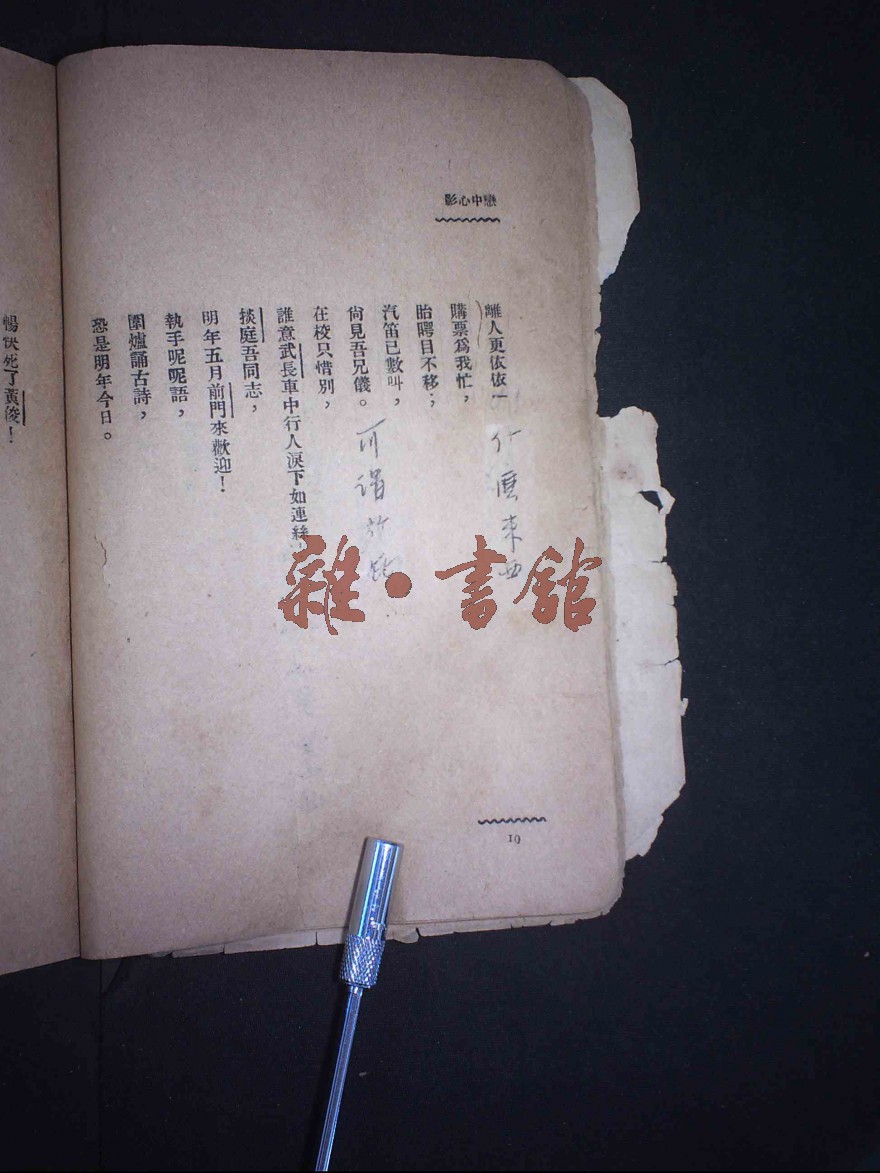 影心中戀
離人更依依！
購票爲我忙，
眙睜目不移；
汽笛已數叫，
尙見吾兄儀。
在校只惜別，
誰意武長車中行人淚下如連絲
掞庭吾同志，
明年五月前門來歡迎！
執手呢呢語，
圍爐誦古詩，
恐是明年今日。
暢快死了黃俊！
東西
可謂
雜·書館
19